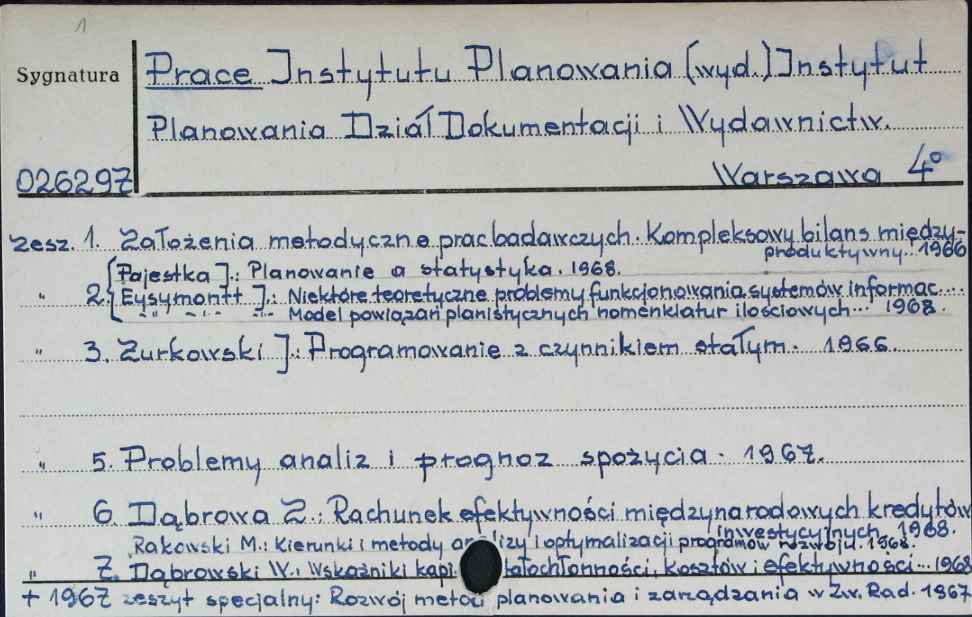 1
Sygnatura Prace Instytutu Planowania (wyd.) Instytut
Planowania Dział Dokumentacji i Wydawnictw.
026297 Warszawa 4°
Zesz. 1. Założenia metodyczne prac badawczych. Kompleksowy bilans między-
produktywny... 1966
Pajestka J.: Planowanie a statystyka. 1968.
" 2. Eysymontt J.: Niektóre teoretyczne problemy funkcjonowania systemów informac...
-"- -"- -"- Model powiązań planistycznych nomenklatur ilościowych... 1968.
" 3. Żurkowski J.: Programowanie z czynnikiem stałym. 1966.
" 5. Problemy analiz i prognoz spożycia. 1967.
" 6. Dąbrowa Z.: Rachunek efektywności międzynarodowych kredytów
inwestycyjnych. 1968.
Rakowski M.: Kierunki i metody analizy i optymalizacji programów rozwoju. 1968.
" 7. Dąbrowski W.: Wskaźniki kapi tałochłonności, kosztów i efektywności... 1968
+ 1967 zeszyt specjalny: Rozwój metod planowania i zarządzania w Zw. Rad. 1967.